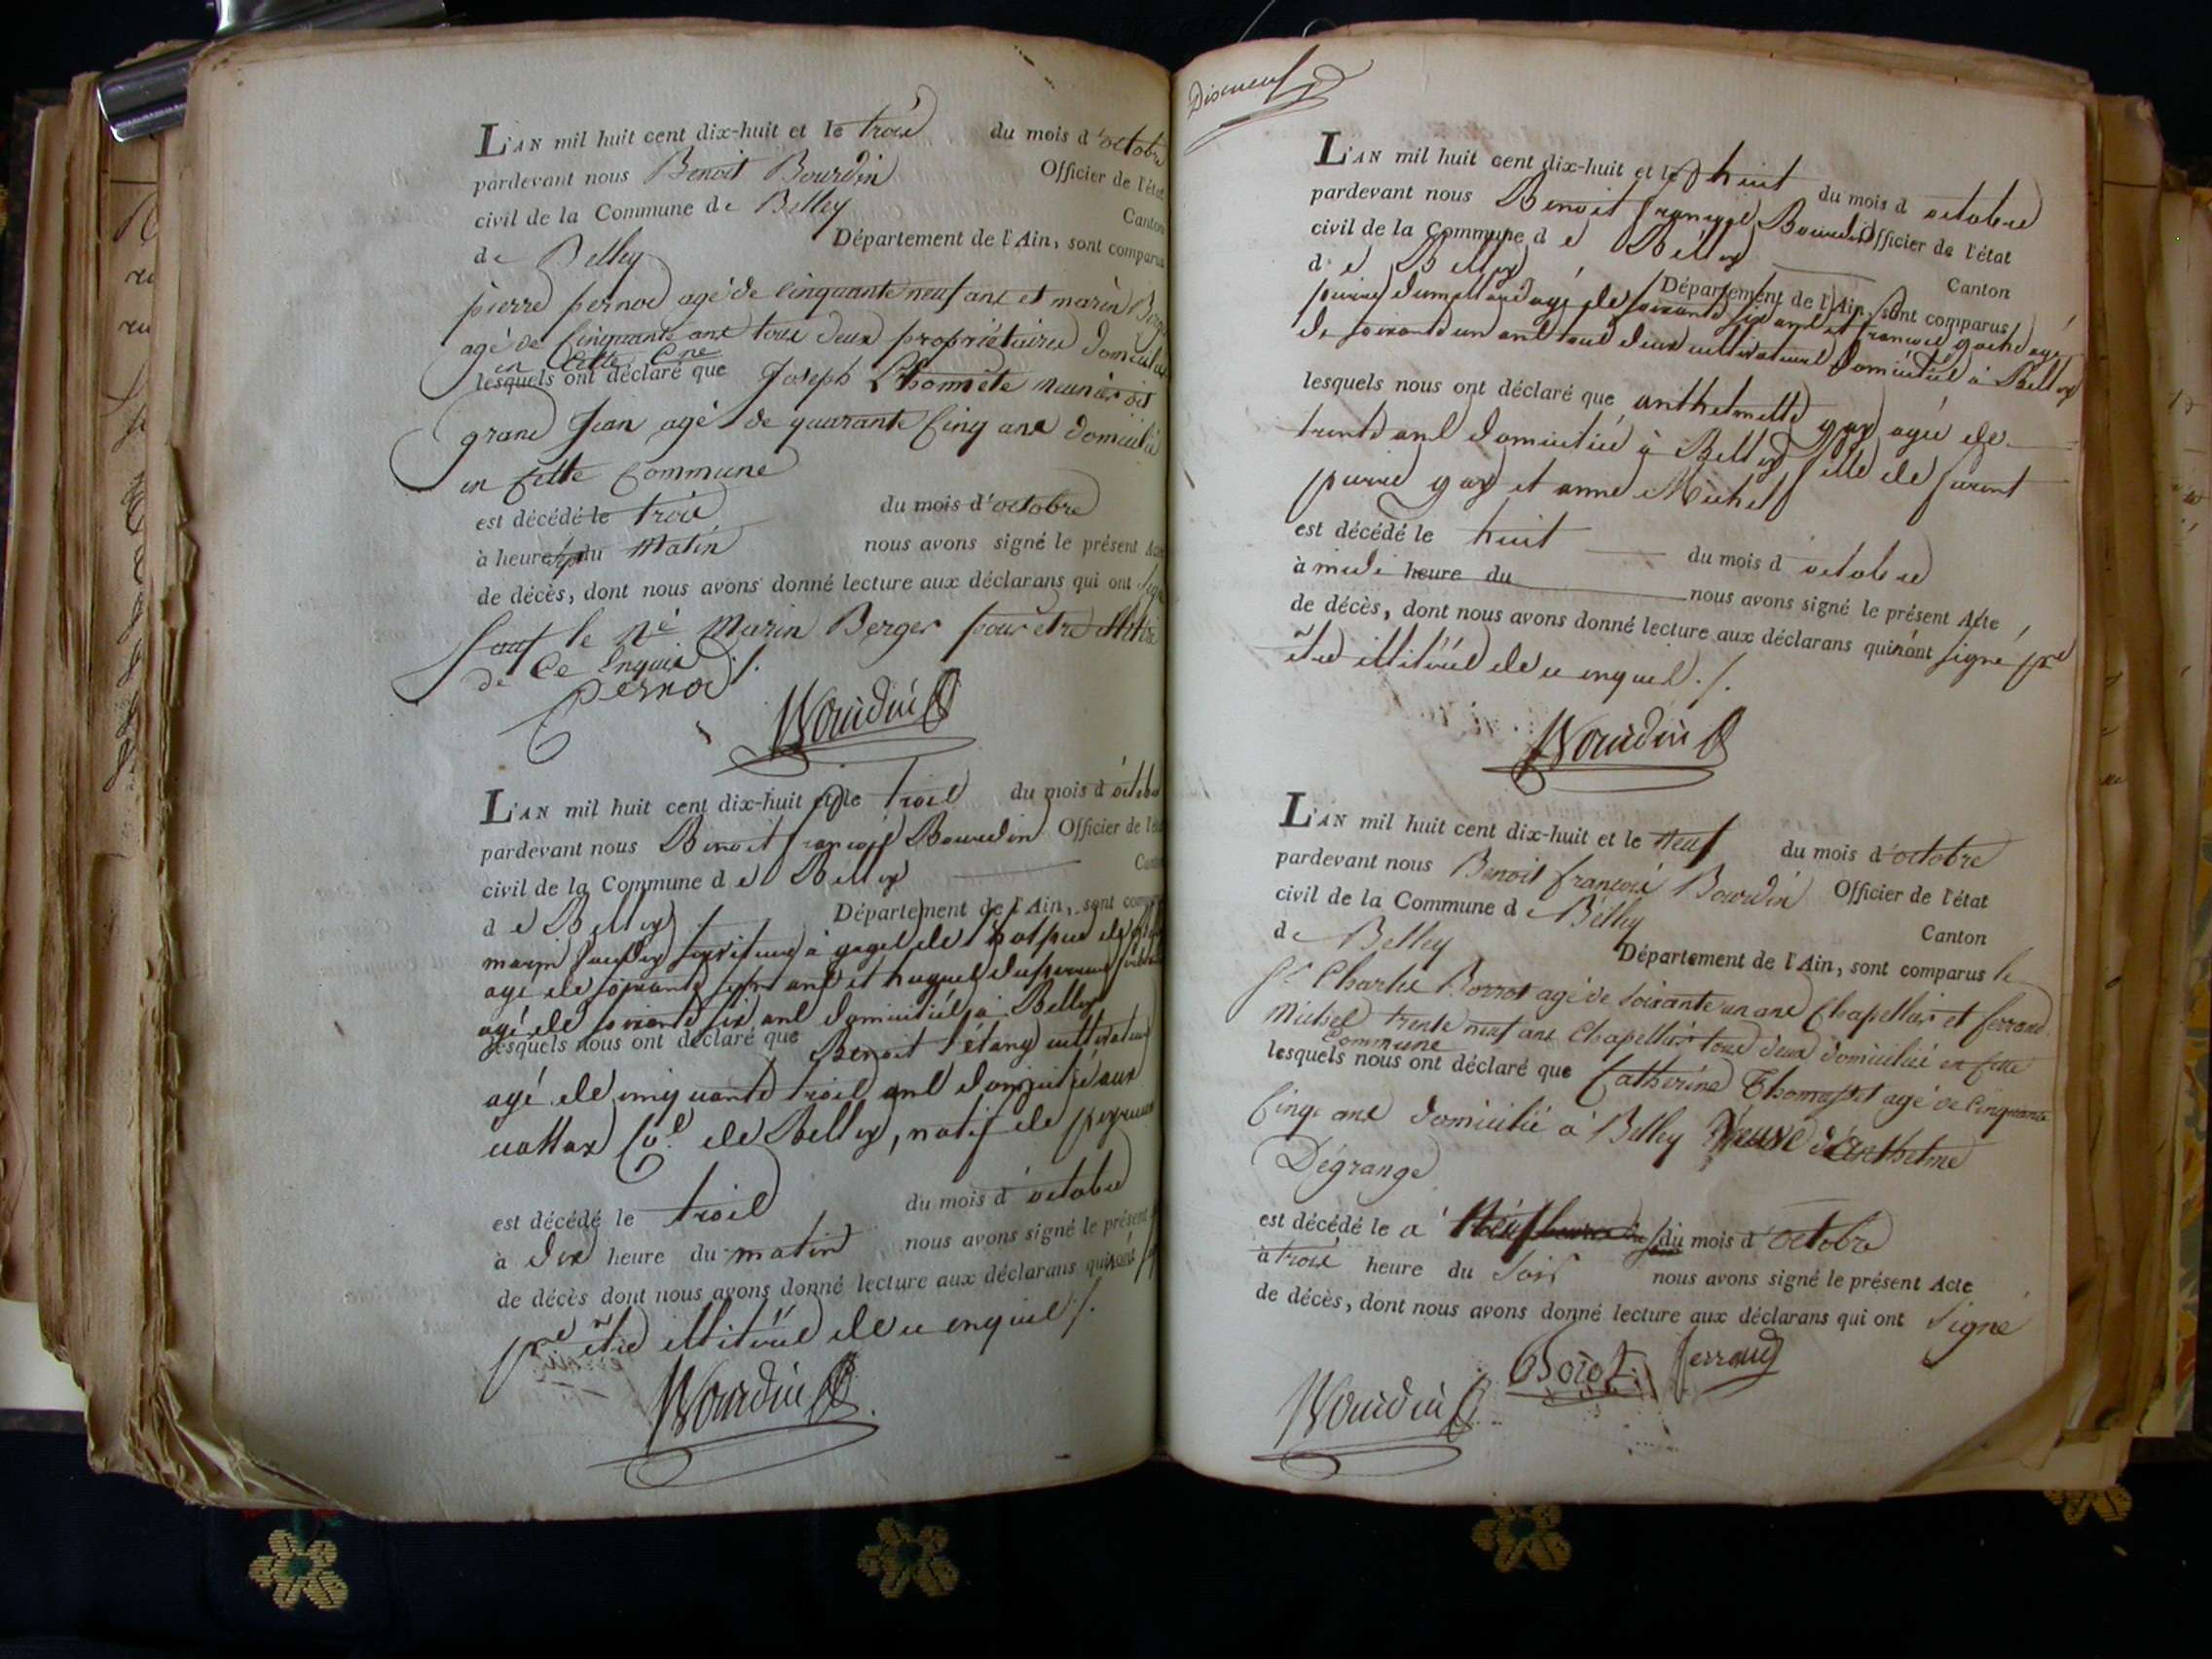 L'AN mil huit cent dix-huit et le trois du mois d'octobre
pardevant nous Benoit Bourdin Officier de l'état
civil de la Commune de Belley Canton
de Belley Département de l'Ain, sont comparus
pierre pernod agé de Cinquante neuf ans et marin Berger
agé de Cinquante ans tous deux propriétaires domiciliés
en Cette Cne
lesquels ont déclaré que Joseph L'homme
grand Jean agé de quarante Cinq ans domicilié
en Cette Commune
est décédé le trois du mois d'octobre
à heure du Matin nous avons signé le présent Acte
de décès, dont nous avons donné lecture aux déclarans qui ont signé
Sauf le né Marin Berger pour etre
de Ce Enquis
Pernod
Bourdin
L'AN mil huit cent dix-huit et le trois du mois d'octobre
pardevant nous Benoit françois Bourdin Officier de l'état
civil de la Commune de Belley Canton
de Belley Département de l'Ain, sont comparus
marin à gages de
agé de soixante sept ans et
agé de soixante six ans domiciliés à Belley
lesquels nous ont déclaré que Benoit l'étang cultivateur
agé de cinquante trois ans domicilié aux
de Belley, natif de
est décédé le trois du mois d'octobre
à dix heure du matin nous avons signé le présent
de décès dont nous avons donné lecture aux déclarans qui n'ont
pr être illitérés de ce enquis ./.
Bourdin
Dixneuf
L'AN mil huit cent dix-huit et le huit du mois d octobre
pardevant nous Benoit françois Bourdin Officier de l'état
civil de la Commune de Belley Canton
de Belley Département de l'Ain, sont comparus
pierre agé de soixante six ans et francois agé
de soixante un ans tous deux cultivateurs domiciliés à Belley
lesquels nous ont déclaré que anthelmette gay agée de
trente ans domiciliée à Belley fille de furent
pierre gay et anne Michel
est décédé le huit du mois d octobre
à midi heure du nous avons signé le présent Acte
de décès, dont nous avons donné lecture aux déclarans qui n'ont signé pr
être illitérés de ce enquis ./.
Bourdin
L'AN mil huit cent dix-huit et le neuf du mois d'octobre
pardevant nous Benoit françois Bourdin Officier de l'état
civil de la Commune de Belley Canton
de Belley Département de l'Ain, sont comparus le
Sr Charles Borrot agé de soixante un ans Chapellier et ferrand
Michel trente neuf ans Chapellier tous deux domicilié en cette
Commune
lesquels nous ont déclaré que Catherine Thomasset agé de Cinquante
Cinq ans domicilié à Belley Veuve d'Anthelme
Dégrange
est décédé le a du mois d'octobre
à trois heure du Soir nous avons signé le présent Acte
de décès, dont nous avons donné lecture aux déclarans qui ont signé
Borot ferrand
Bourdin